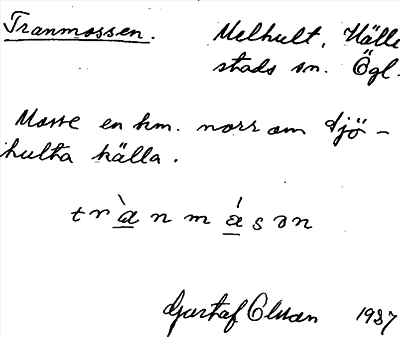 Tranmossen. Melhult, Hälle-
stads sn. Ögl.
Mosse en km. norr om Djö-
hulta källa.
trànmásən
Gustaf 1937